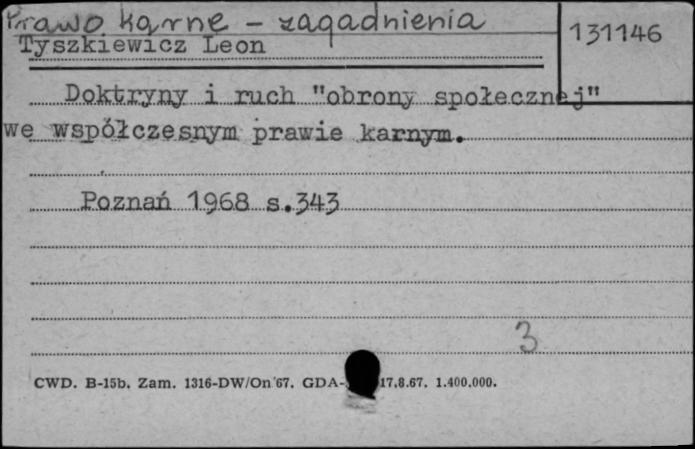 Prawo karne - zagadnienia
131146
Tyszkiewicz Leon
Doktryny i ruch "obrony społecznej"
we współczesnym prawie karnym.
Poznań 1968 s.343
3
CWD. B-15b. Zam. 1316-DW/On 67. GDA- 17.8.67. 1.400.000.